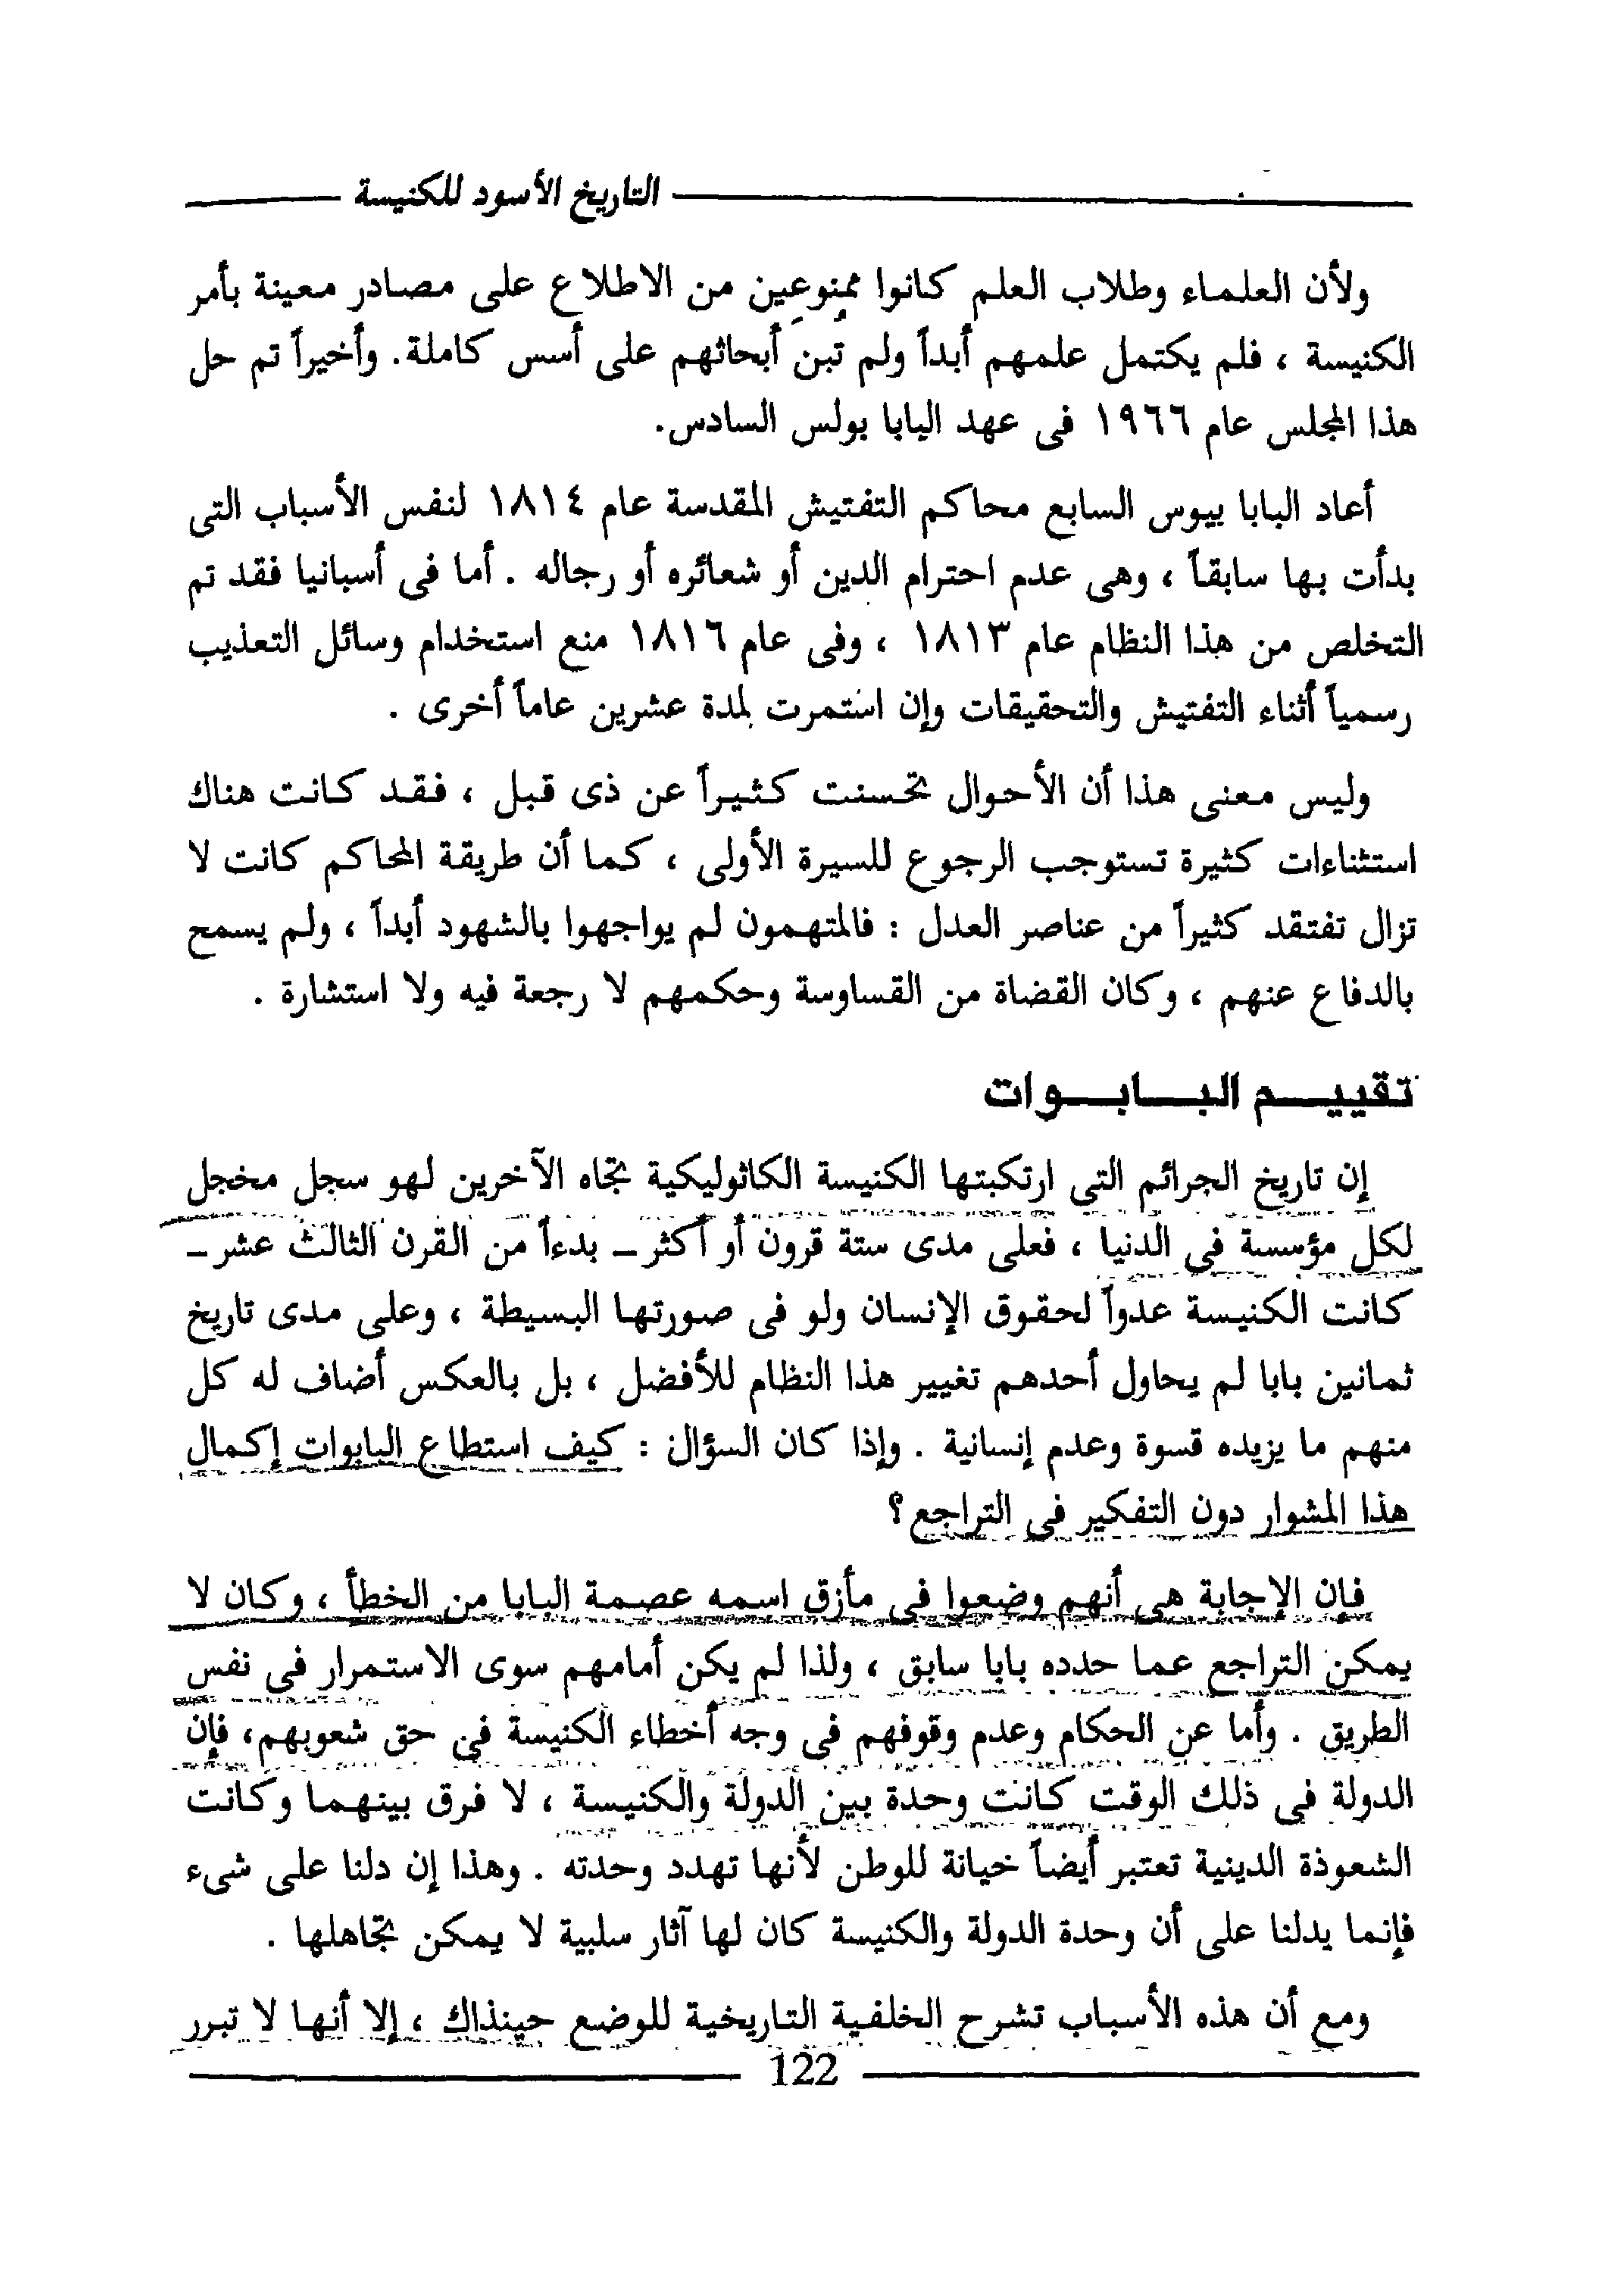 التاريخ الأسود للكنيسة
ولأن العلماء وطلاب العلم كانوا ممنوعين من الاطلاع على مصادر معينة بأمر
الكنيسة ، فلم يكتمل علمهم أبداً ولم تبن أبحاثهم على أسس كاملة. وأخيراً تم حل
هذا المجلس عام ١٩٦٦ فى عهد البابا بولس السادس.
أعاد البابا بيوس السابع محاكم التفتيش المقدسة عام ١٨١٤ لنفس الأسباب التى
بدأت بها سابقاً ، وهى عدم احترام الدين أو شعائره أو رجاله . أما فى أسبانيا فقد تم
التخلص من هذا النظام عام ١٨١٣ ، وفى عام ١٨١٦ منع استخدام وسائل التعذيب
رسمياً أثناء التفتيش والتحقيقات وإن استمرت لمدة عشرين عاماً أخرى .
وليس معنى هذا أن الأحوال تحسنت كثيراً عن ذى قبل ، فقد كانت هناك
استثناءات كثيرة تستوجب الرجوع للسيرة الأولى ، كما أن طريقة المحاكم كانت لا
تزال تفتقد كثيراً من عناصر العدل : فالمتهمون لم يواجهوا بالشهود أبداً ، ولم يسمح
بالدفاع عنهم ، وكان القضاة من القساوسة وحكمهم لا رجعة فيه ولا استشارة .
تقييم البابوات
إن تاريخ الجرائم التى ارتكبتها الكنيسة الكاثوليكية تجاه الآخرين لهو سجل مخجل
لكل مؤسسة فى الدنيا ، فعلى مدى ستة قرون أو أكثر – بدءاً من القرن الثالث عشر –
كانت الكنيسة عدواً لحقوق الإنسان ولو فى صورتها البسيطة ، وعلى مدى تاريخ
ثمانين بابا لم يحاول أحدهم تغيير هذا النظام للأفضل ، بل بالعكس أضاف له كل
منهم ما يزيده قسوة وعدم إنسانية . وإذا كان السؤال : كيف استطاع البابوات إكمال
هذا المشوار دون التفكير فى التراجع؟
فإن الإجابة هى أنهم وضعوا فى مأزق اسمه عصمة البابا من الخطأ ، وكان لا
يمكن التراجع عما حدده بابا سابق ، ولذا لم يكن أمامهم سوى الاستمرار فى نفس
الطريق . وأما عن الحكام وعدم وقوفهم فى وجه أخطاء الكنيسة فى حق شعوبهم، فإن
الدولة فى ذلك الوقت كانت وحدة بين الدولة والكنيسة ، لا فرق بينهما وكانت
الشعوذة الدينية تعتبر أيضاً خيانة للوطن لأنها تهدد وحدته . وهذا إن دلنا على شىء
فإنما يدلنا على أن وحدة الدولة والكنيسة كان لها آثار سلبية لا يمكن تجاهلها .
ومع أن هذه الأسباب تشرح الخلفية التاريخية للوضع حينذاك ، إلا أنها لا تبرر
122